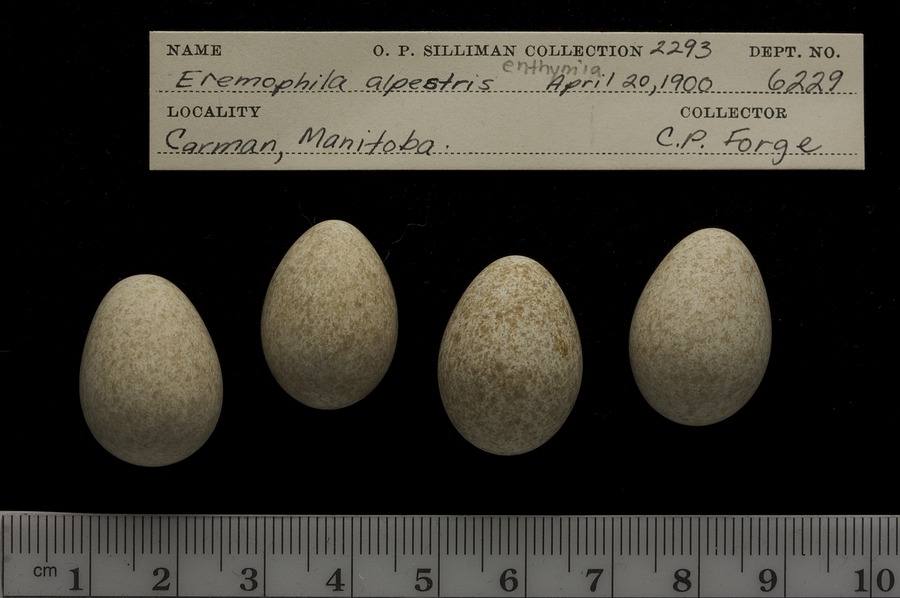 NAME O. P. SILLIMAN COLLECTION 2293 DEPT. NO.
enthymia
Eremophila alpestris April 20, 1900 6229
LOCALITY COLLECTOR
Carman, Manitoba. C.P. Forge
cm 1 2 3 4 5 6 7 8 9 10